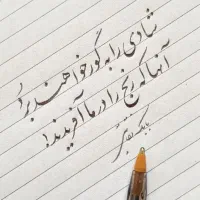 شادی را به گور خواهند برد
آنها که رنج را در ما آفریدند!